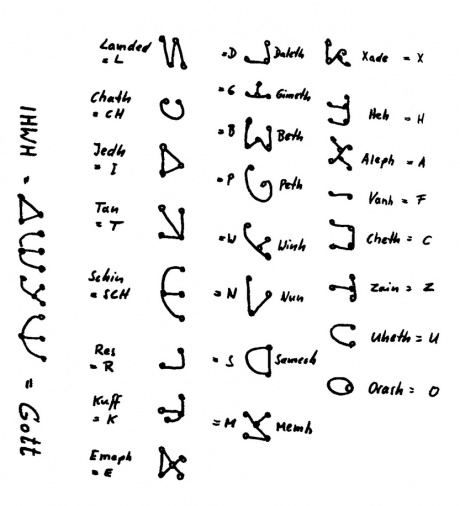 Lamded = L
Chath = CH
Jedh = I
Tan = T
Schin = SCH
Res = R
Kuff = K
Emeph = E
= D Daleth
= G Gimeth
= B Beth
= P Peth
= W Winh
= N Nun
= S Samech
= M Memh
Xade = X
Heh = H
Aleph = A
Vanh = F
Cheth = C
Zain = Z
Uheth = U
Orash = O
IHWH = = Gott